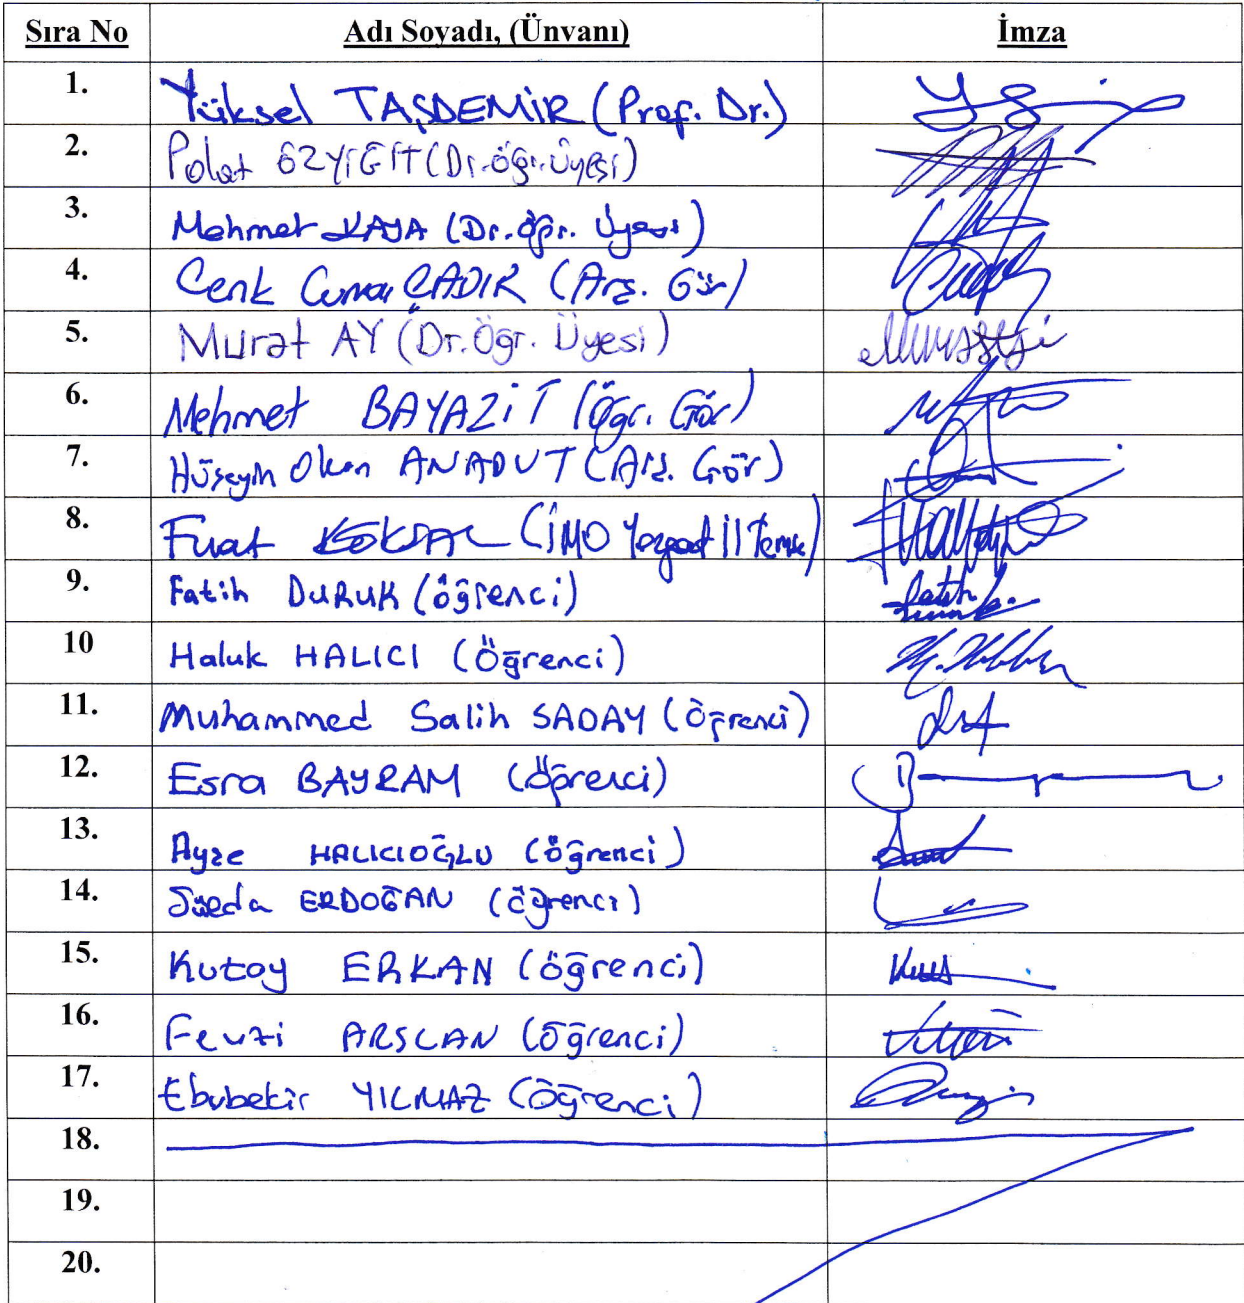 Sıra No Adı Soyadı, (Ünvanı) İmza
1. Yüksel TAŞDEMİR (Prof. Dr.)
2. Polat ÖZYİĞİT (Dr. öğr. üyesi)
3. Mehmet KAYA (Dr. öğr. üyesi)
4. Cenk Cuma ÇADIR (Arş. Gör)
5. Murat AY (Dr. Öğr. Üyesi)
6. Mehmet BAYAZİT (Öğr. Gör)
7. Hüseyin Okan ANADUT (Arş. Gör)
8. Fuat KÖKSAL (İMO Yozgat İl Tems)
9. Fatih DURUK (öğrenci)
10 Haluk HALICI (Öğrenci)
11. Muhammed Salih SADAY (Öğrenci)
12. Esra BAYRAM (Öğrenci)
13. Ayşe HALICIOĞLU (öğrenci)
14. Süeda ERDOĞAN (öğrenci)
15. Kutay ERKAN (öğrenci)
16. Fevzi ARSLAN (öğrenci)
17. Ebubekir YILMAZ (öğrenci)
18.
19.
20.